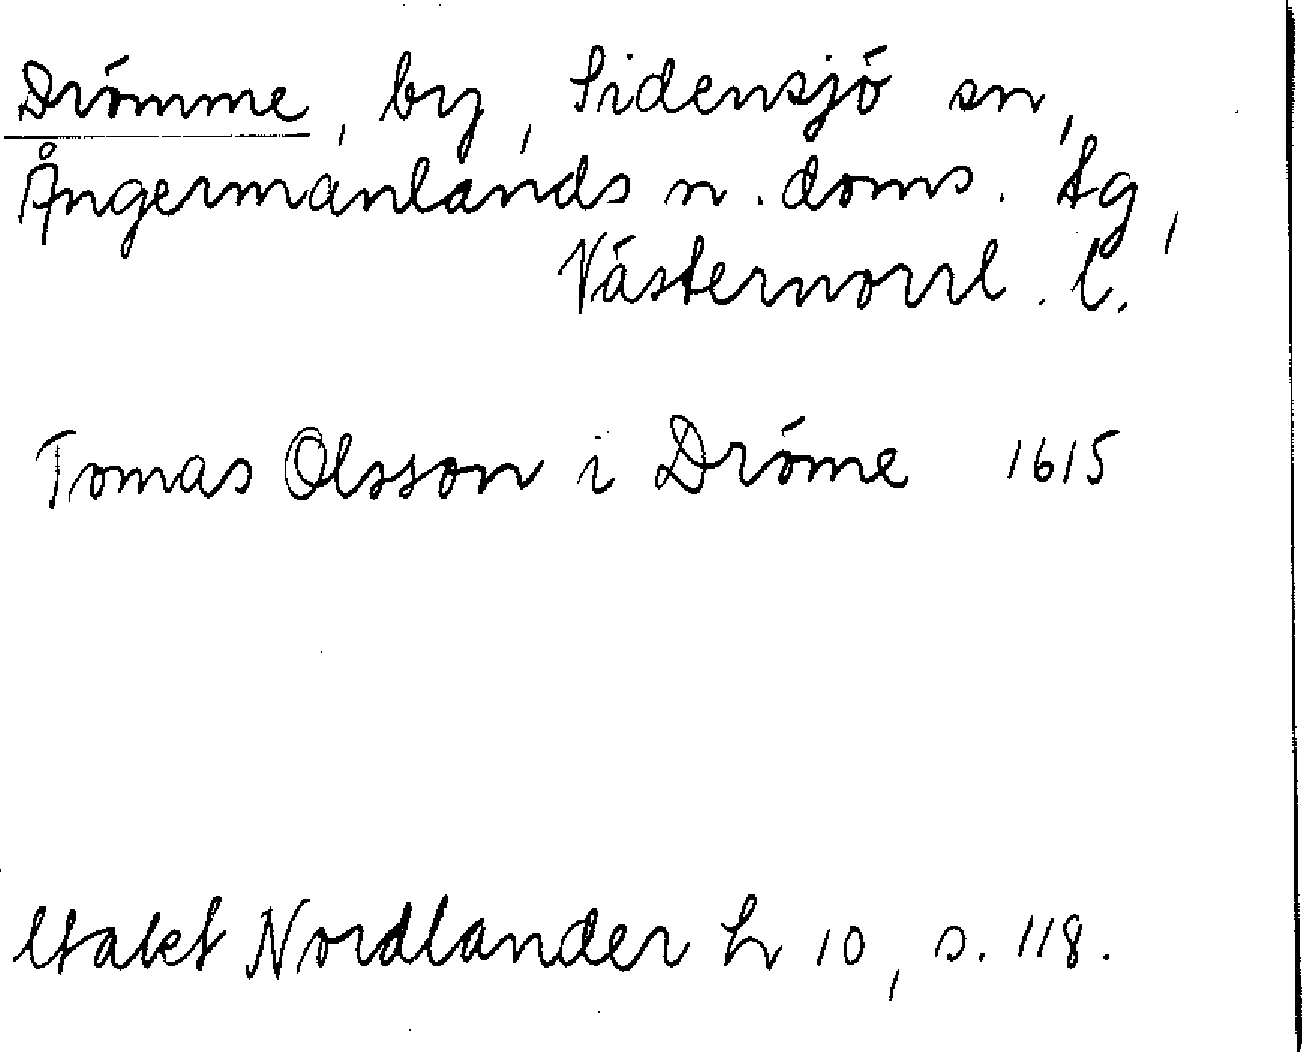 Drömme, by, Sidensjö sn,
Ångermanlands n. doms. tg,
Västernorrl. l.
Tomas Olsson i Dröme 1615
Utakt Nordlander h 10, s. 118.